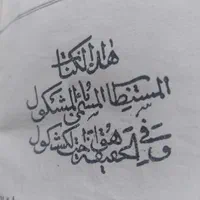 هذا الكتاب
المستطاب المسمى بالمشكول
وفي الحقيقة هو ثاني الكشكول